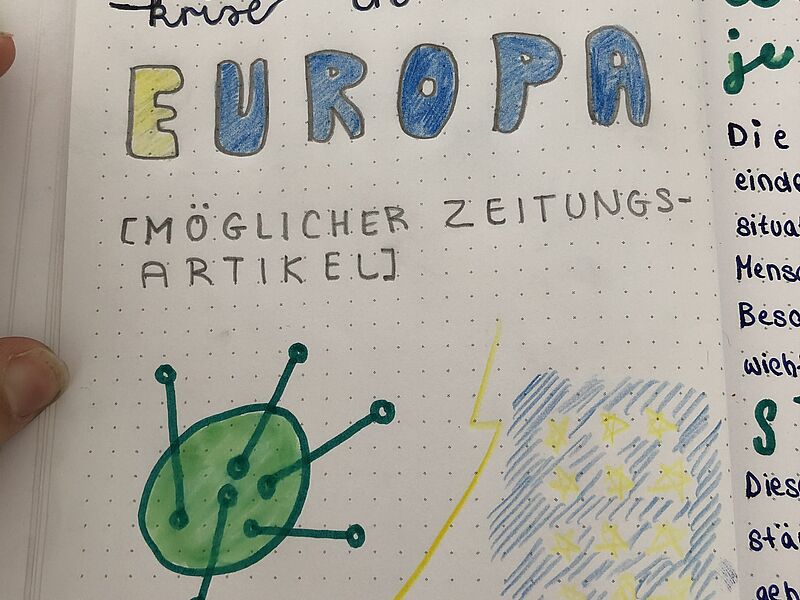 krise
EUROPA
[MÖGLICHER ZEITUNGS-
ARTIKEL]
je
Die
situa
Mens
Bes
S
Dies
stä
geh